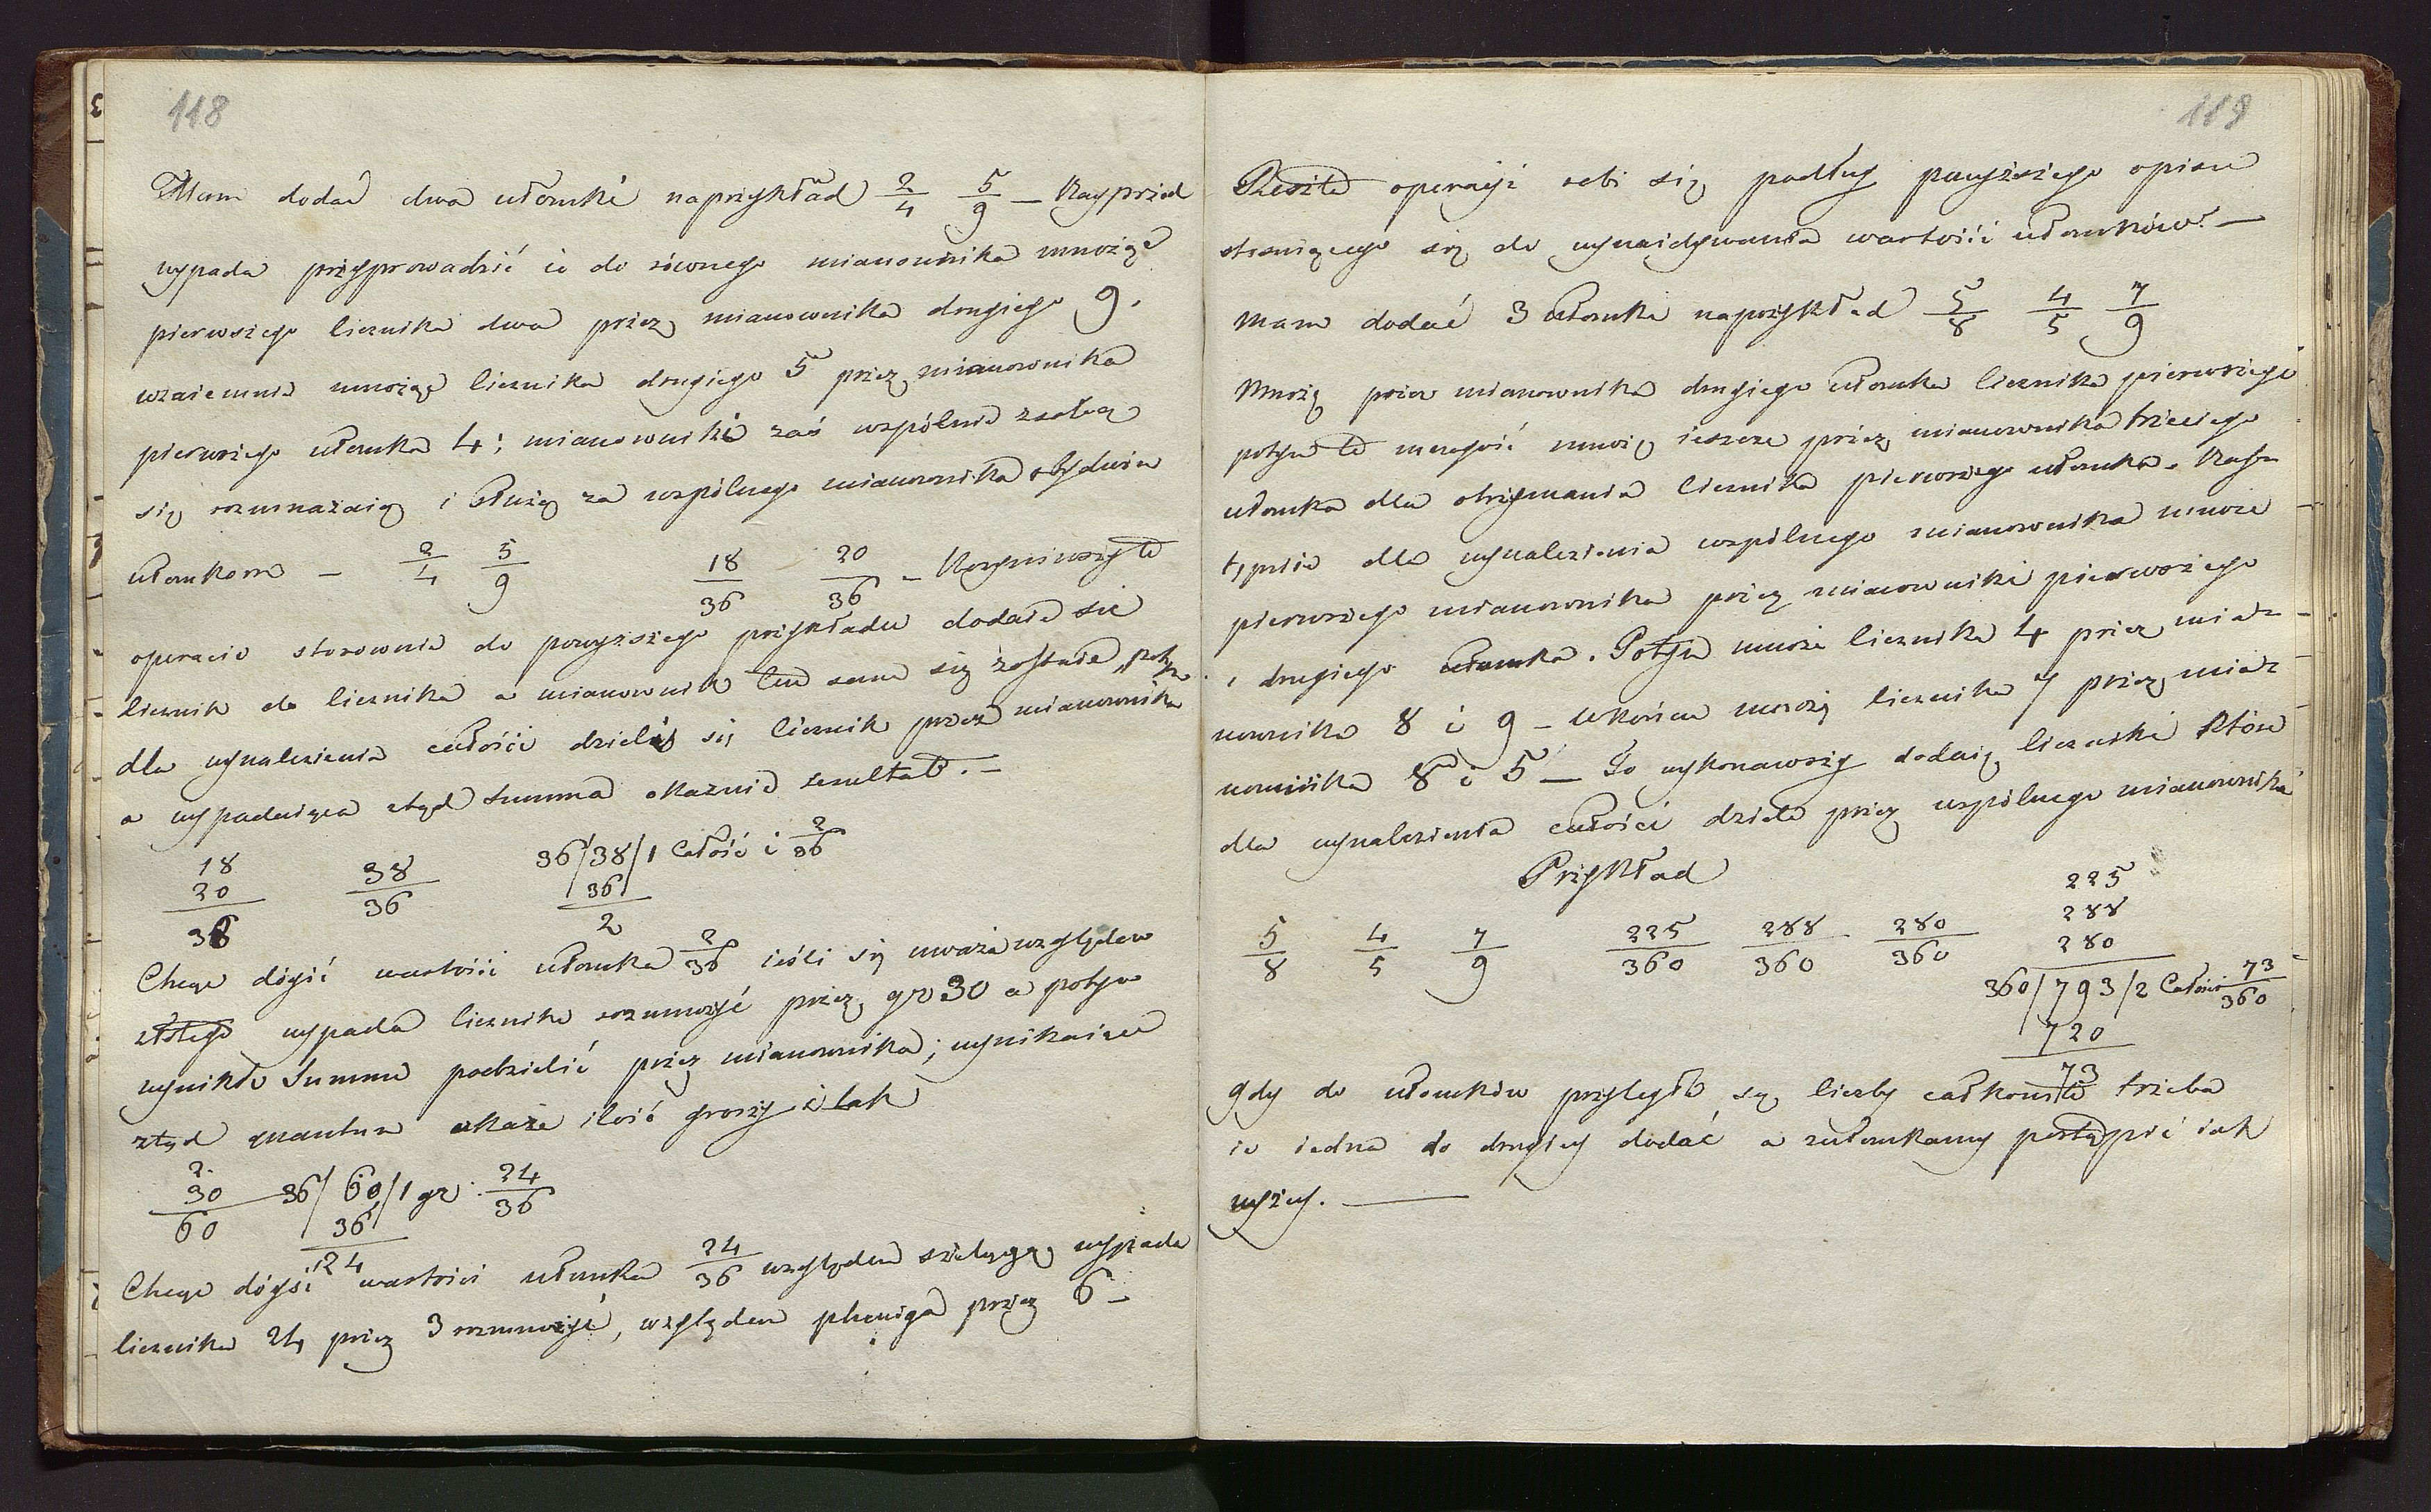 118
Mam dodać dwa ułomki naprzykład 2/4 5/9 – Nayprzód
wypada przyprowadzić ie do równego mianownika mnożąc
pierwszego licznika dwa przez mianownika drugiego 9.
wzaiemnie mnożąc licznika drugiego 5 przez mianownika
pierwszego ułomka 4; mianowniki zaś wspólnie z sobą
się rozmnażaią i służą za wspólnego mianownika obydwu
ułomkom – 2/4 5/9 18/36 20/36 – Uczyniwszy te
operacie stosownie do powyższego przykładu dodaie się
licznik do licznika a mianownik ten sam się zostaie, potym
dla wynalezienia całości dzieli się licznik przez mianownika
a wypadaiąca ztąd summa okazuie rezultat. –
18 20 36 38/36 36/38/1 Całość i 2/36
36
2
Chcąc dóyść wartości ułomka 2/36 ieśli się uważa względem
złotego wypada licznika rozmnożyć przez gr 30 a potym
wynikłe Summe podzielić przez mianownika; wynikaiące
ztąd quantum okaże ilość groszy i tak
2 30 60 36/60/1 gr. 24/36
36
24
Chcąc dóyść wartości ułomka 24/36 względem szeląga, wypada
licznika 24 przez 3 rozmnożyć, względem pheniga przez 6 –
119
Reszta operacyi robi się podług powyższego opisu
stosuiącego się do wynaidywania wartości ułomków. –
Mam dodać 3 ułomki naprzykład 5/8 4/5 7/9
Mnożę przez mianownika drugiego ułomka licznika pierwszego
potym te mnogość mnożę ieszcze przez mianownika trzeciego
ułomka dla otrzymania licznika pierwszego ułomka. Nas-
tępnie dla wynalezienia wspólnego mianownika mnoże
pierwszego mianownika przez mianowniki pierwszego
i drugiego ułomka. Potym mnoże licznika 4 przez mia-
nownika 8 i 9 – Wkońcu mnożę licznika 7 przez mia-
nownika 8 i 5 – To wykonawszy dodaię liczniki które
dla wynalezienia całości dziele przez wspólnego mianownika
Przykład
5/8 4/5 7/9 225/360 288/360 280/360
225
288
280
360/793/2 Całości 73/360
720
73
gdy do ułomków przyległe są liczby całkowite trzeba
ie iedna do drugiey dodać a z ułomkamy postąpić iak
wyżey. –